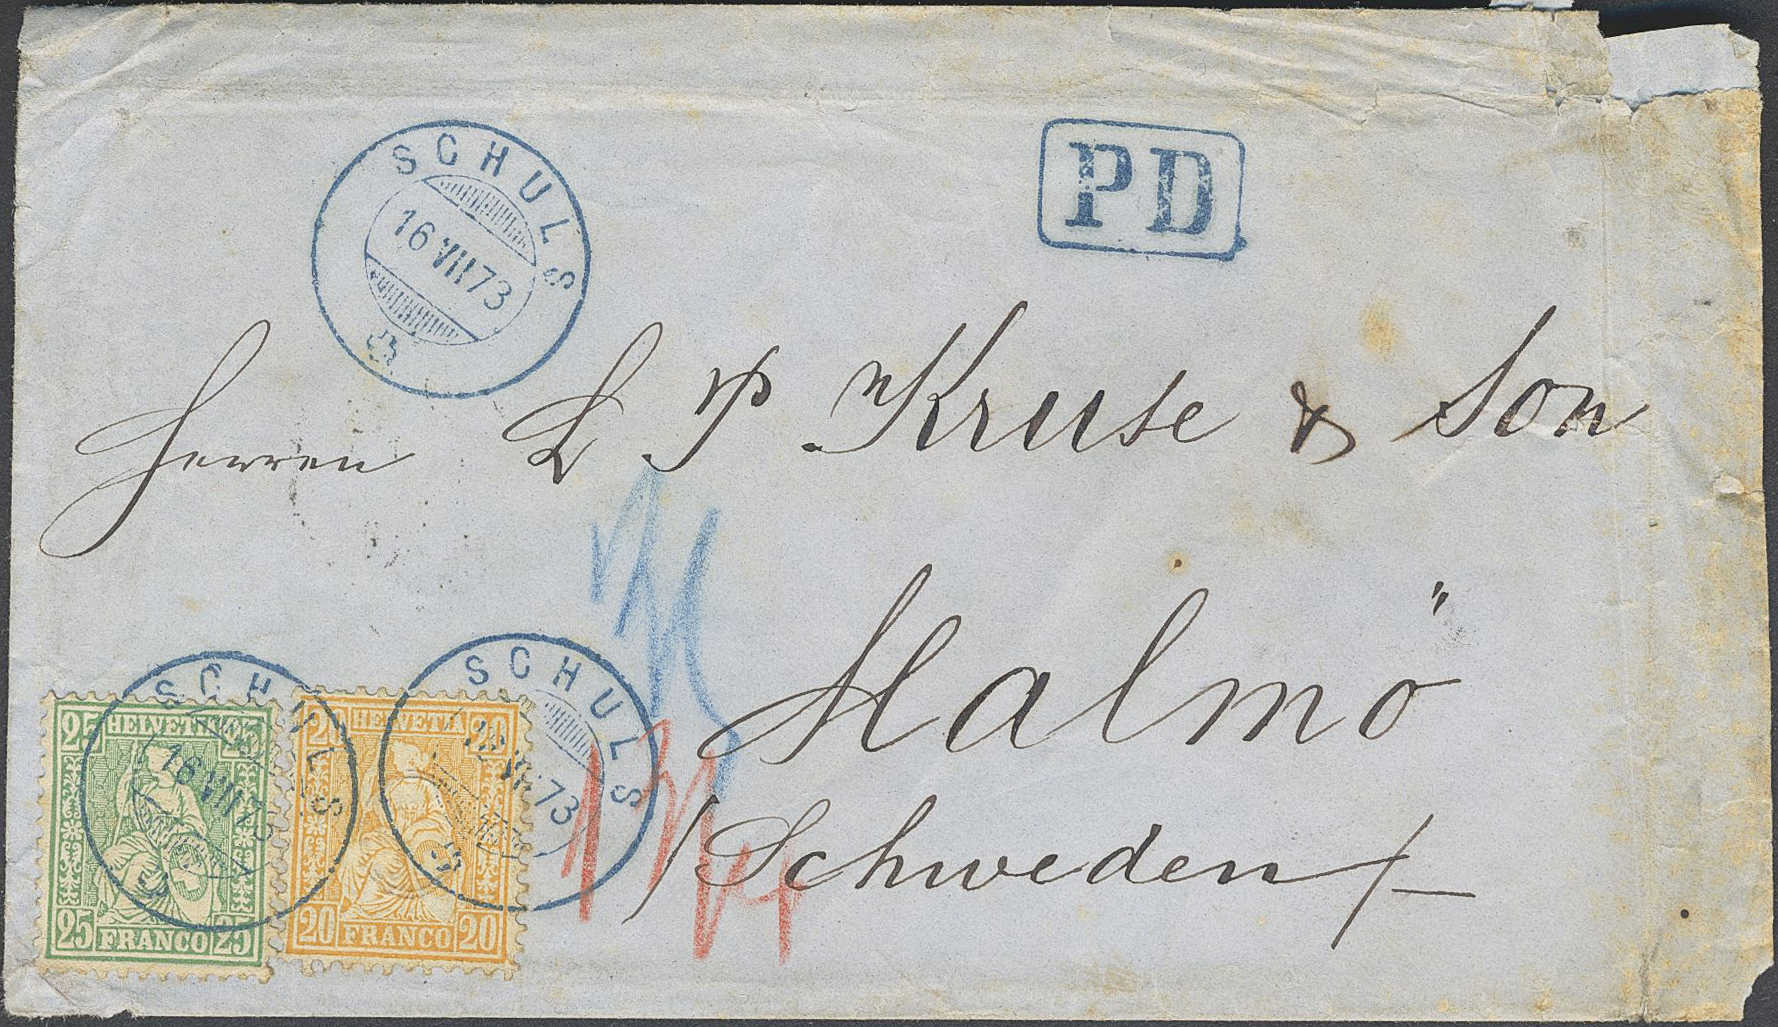 SCHULS
16 VII 73
PD
Herren L P Kruse & Son
Malmö
(Schweden)
SCHULS
16 VII 73
25 HELVETIA 25
25 FRANCO 25
SCHULS
VII 73
20 HELVETIA 20
20 FRANCO 20